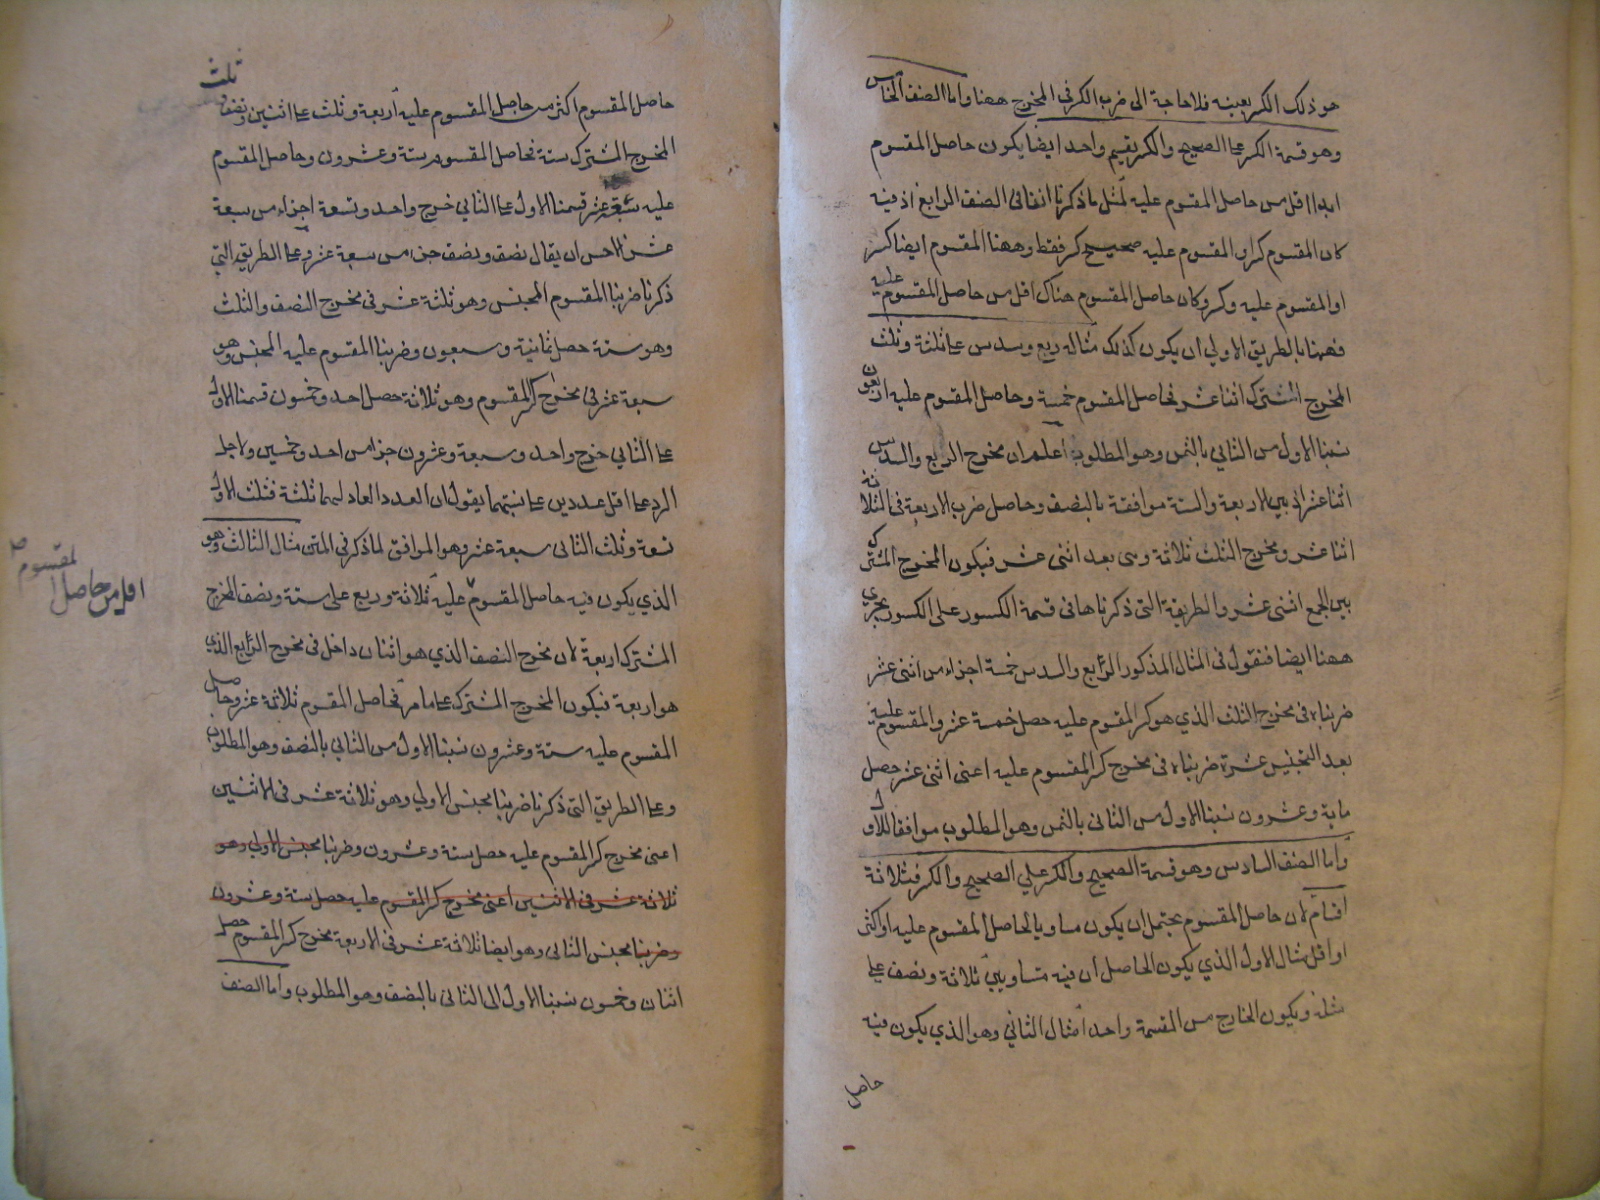 هو ذلك الكسر بعينه فلا حاجة الى ضرب الكسر في المخرج ههنا واما الصنف الخامس
وهو قسمة الكسر على الصحيح والكسر بقسم واحد ايضا يكون حاصل المقسوم
ابدا اقل من حاصل المقسوم عليه لمثل ما ذكرنا انفا في الصنف الرابع اذ فيه
كان المقسوم كسرا والمقسوم عليه صحيح كسر فقط وههنا المقسوم ايضا كسر
او المقسوم عليه وكسر وكان حاصل المقسوم هناك اقل من حاصل المقسوم عليه
فههنا بالطريق الاولي ان يكون كذلك مثاله ربع وسدس على ثلثة وثلث
المخرج المشترك اثنا عشر فحاصل المقسوم خمسة وحاصل المقسوم عليه اربعون
نسبنا الاول من الثاني بالثمن وهو المطلوب اعلم ان مخرج الربع والسدس
اثنا عشر اذ بين الاربعة والستة موافقة بالنصف وحاصل ضرب الاربعة في الثلاثة
اثنا عشر ومخرج الثلث ثلاثة وهى بعد اثنى عشر فيكون المخرج المشترك
بين الجمع اثنى عشر والطريقة التى ذكرناها في قسمة الكسور على الكسور يجري
ههنا ايضا فنقول في المثال المذكور الرابع والسدس خمسة اجزاء من اثنى عشر
ضربناه في مخرج الثلث الذي هو كسر المقسوم عليه حصل خمسة عشر والمقسوم عليه
بعد التجنيس عشرة ضربناه في مخرج كسر المقسوم عليه اعنى اثنى عشر حصل
ماية وعشرون نسبنا الاول من الثانى بالثمن وهو المطلوب موافقا للاول
واما الصنف السادس وهو قسمة الصحيح والكسر علي الصحيح والكسر فثلاثة
اقسام لان حاصل المقسوم يحتمل ان يكون مساويا لحاصل المقسوم عليه او اكثر
او اقل مثال الاول الذي يكون الحاصل ان فيه متساويين ثلاثة ونصف على
مثله ويكون الخارج من القسمة واحدا مثال الثاني وهو الذي يكون فيه
حاصل
ثلث
حاصل المقسوم اكثر من حاصل المقسوم عليه اربعة وثلث على اثنين ونصف و
المخرج المشترك ستة فحاصل المقسوم ستة وعشرون وحاصل المقسوم
عليه سبعة عشر قسمنا الاول على الثاني خرج واحد وتسعة اجزاء من سبعة
عشر الاحسن ان يقال نصف ونصف جزء من سبعة عشر وعلى الطريق التي
ذكرنا ضربنا المقسوم المجنس وهو ثلثة عشر في مخرج النصف والثلث
وهو ستة حصل ثمانية وسبعون وضربنا المقسوم عليه المجنس وهو
سبعة عشر في مخرج كسر المقسوم وهو ثلاثة حصل احد وخمسون قسمنا الاول
على الثاني خرج واحد وسبعة وعشرون جزا من احد وخمسين ولاجل
الرد على اقل عددين على نسبتهما يقول ان العدد العاد لهما ثلثة فثلث الاول
تسعة وثلث الثانى سبعة عشر وهو الموافق لما ذكر في المتن مثال الثالث وهو
الذي يكون فيه حاصل المقسوم عليه ثلاثة وربع على ستة ونصف المخرج
المشترك اربعة لان مخرج النصف الذي هو اثنان داخل في مخرج الرابع الذي
هو اربعة فيكون المخرج المشترك على ما مر فحاصل المقسوم ثلاثة عشر وحاصل
المقسوم عليه ستة وعشرون نسبنا الاول من الثاني بالنصف وهو المطلوب
وعلى الطريق التى ذكرنا ضربنا مجنس الاولي وهو ثلاثة عشر في الاثنين
اعنى مخرج كسر المقسوم عليه حصل ستة وعشرون وضربنا مجنس الاولي وهو
ثلاثة عشر في الاثنين اعنى مخرج كسر المقسوم عليه حصل ستة وعشرون
وضربنا مجنس الثانى وهو ايضا ثلاثة عشر في الاربعة مخرج كسر المقسوم حصل
اثنان وخمسون نسبنا الاول الى الثانى بالنصف وهو المطلوب واما الصنف
اقل من حاصل المقسوم